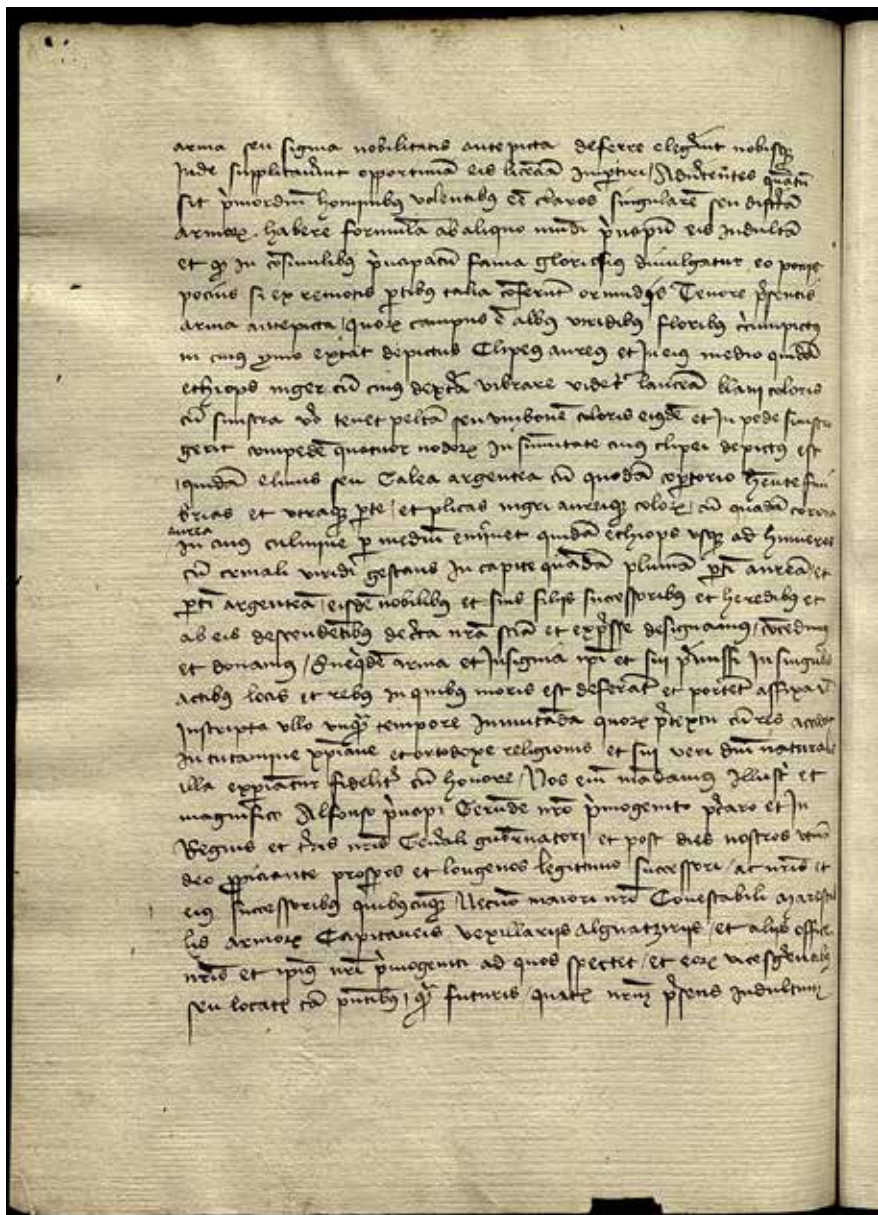 arma seu signa nobilitatis antepicta deferre elegerint nobisque
Inde supplicaverint opportunam eis licenciam Impertiri / Advertentes quantum
sit primordium hominibus volentibus esse claros singularem seu distinctam
armorum habere formulam ab aliquo mundi principum eis Indultam
et quod In consimilibus principatum fama gloriosius divulgatur eo
pocius si ex remotis partibus talia conferunt Tenore presentis
arma antepicta / quorum campus est albus viridibus floribus circumpictus
in cuius ymo extat depictus Clipeus aureus et In eius medio quidam
ethiops niger cum cuius dextera vibrare videtur lanceam blavi coloris
cum sinistra vero tenet peltam seu umbonem coloris eiusdem et In pede sinistro
gerit compedem quatuor nodorum In sumitate cuius clipei depictus est
quidam elmus seu Galea argentea cum quodam coopertorio habente fim
brias et utraque parte / et plicas nigri aureique coloris / cum quadam corona
aurea
In cuius culmine per medium eminet quidam ethiops usque ad humeros
cum crinali viridi gestans In capite quandam plumam partim auream / et
partim argenteam / eisdem nobilibus et suis filiis successoribus et heredibus et
ab eis descendentibus de certa nostra sciencia et expresse designamus / concedimus
et donamus / Quequidem arma et Insignia ipsi et sui premissi In singulis
actibus locis et rebus in quibus moris est deferant et portent affixa vel
Inscripta ullo unquam tempore Inmutanda quorum pretextu cum res
In tutamine christiane et ortodoxe religionis et sui veri domini naturalis
illa experiantur fideliter cum honore / Nos enim mandamus Illustri et
magnifico Alfonso principi Gerunde nostro primogenito percaro et In
Regnis et terris nostris Generali gubernatori et post dies nostros
deo propiciante prosperos et longevos legittimo successori / ac nostris et
eius successoribus quibuscunque Necnon maiori nostri Conestabili marescal
lis armorum Capitaneis vexillariis Algutziriis / et aliis offici
nostris et ipsius nostri primogeniti ad quos spectet / et eorum vicesgerentibus
seu locate tam presentibus / quam futuris / quatenus nostrum presens Indultum